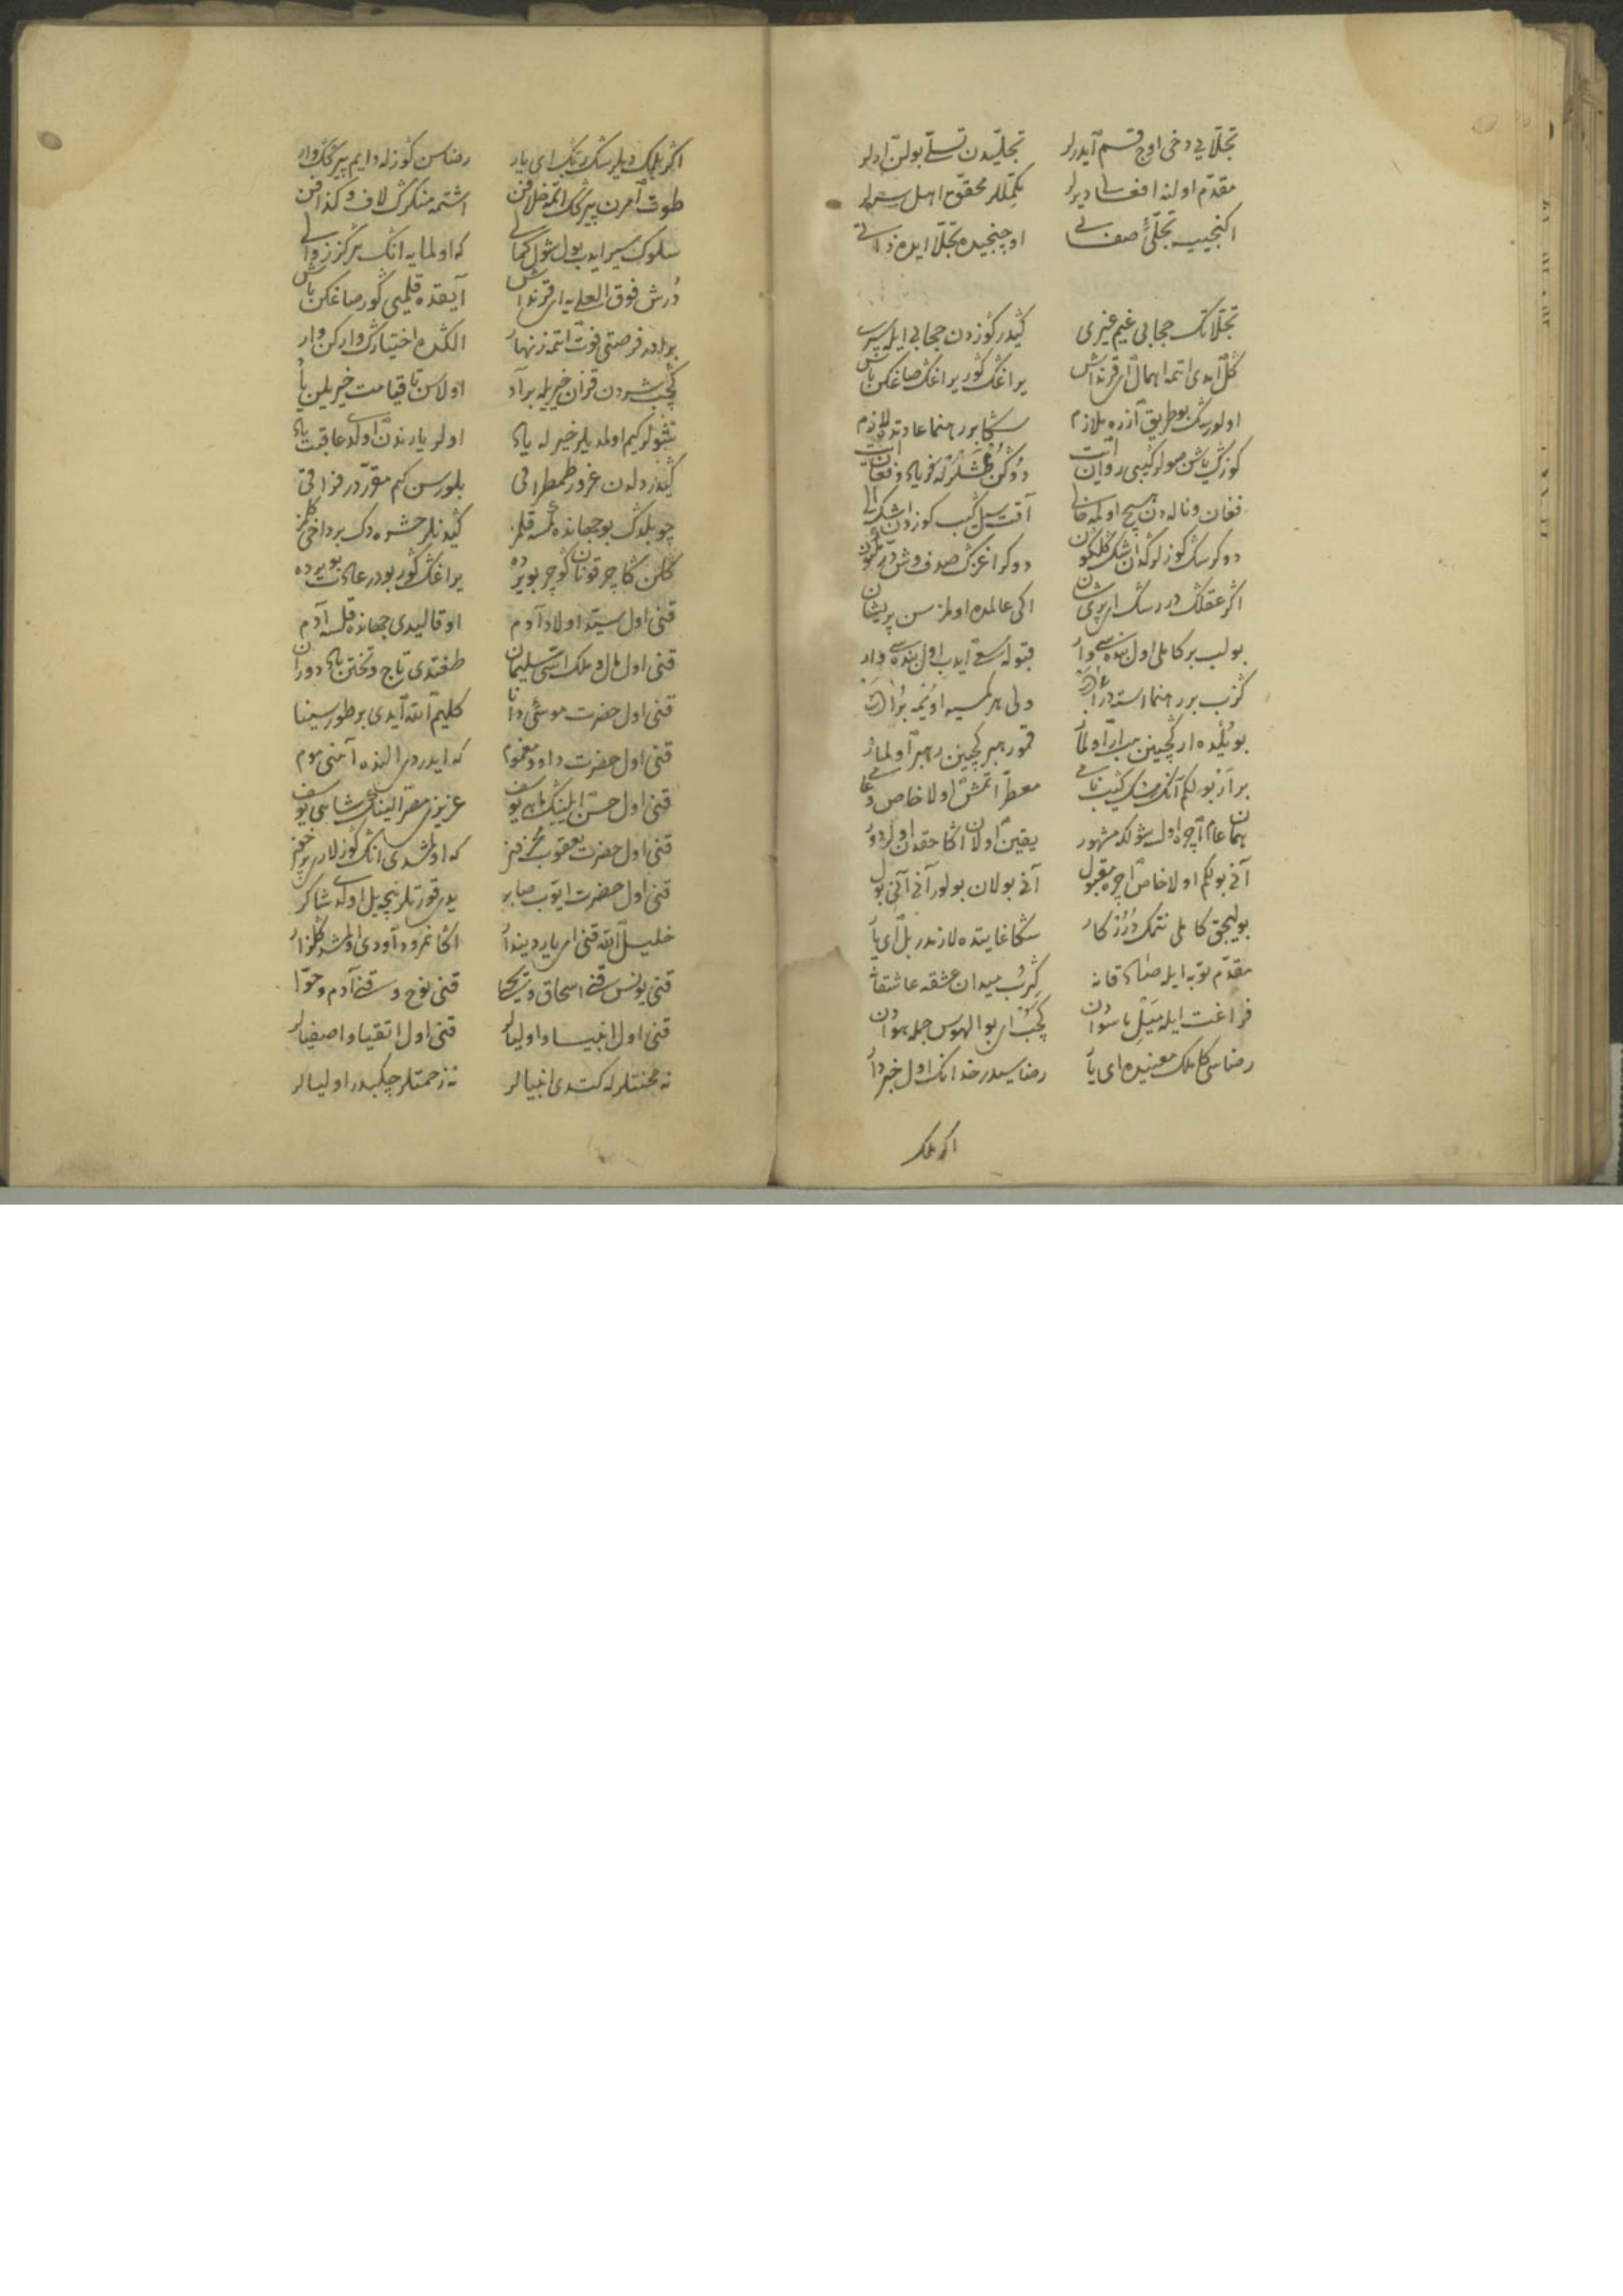 تجلّایی دخی اوچ قسم آیدرلر تجلّیدن تسلّی بولن ارلر
مقدّم اولنه افعالی دیرلر مکمّللر محقّق اهل سرلر
اکنجیسه تجلّیٔ صفاتی اوچنجیده تجلّا ایده ذاتی
تجلّانک حجابی غیم غیری گیدر کوزدن حجابی ایله سیری
گل ایدی اتمه اهمال ای قرنداش یراغک گور یراغک صاغکن باش
اولورسک بو طریق آزره ملازم سکا بر رهنما عادتده لازم
کوزک یاشن صولر کیبی روان ایت دوکن عشقله فریاد و فغان ایت
فغان و ناله دن هیچ اولمه خالی آقت سیل کیب کوزدن اشک
دوکرسک کوزلرکدن اشک گلگون دوکر اغزک صدف وش درّ مکنون
اگر عقلک دررسک ار پریشان اکی عالمده اولمزسن پریشان
بولب بر کاملی اول بنده سی وار قبوله سعی ایدب اول بنده وار
گزب بر رهنما استه در ولی هر کمسیه اویمه
بو یلده ار گچینن ار اولماز قمو رهبر گچینن رهبر اولماز
بر از بولکم آنک مسک کیب معطّر اتمش اولا خاص
همان عام اچره اول شولکه مشهور یقین اولان اکا حقدن اولر دور
آنی بولکم اولا خاص اچره مقبول آنی بولان بولور آنی آنی بول
بولیجق کاملی نتمک در کار سکا غایتده لازمدر بل ای یار
مقدّم توبه ایله قانه گرب میدان عشقه عاشقانه
فراغت ایله میل ماسوادن گچب ای بو الهوس جمله هوادن
رضاسی کاملک معنیده ای یار رضاسیدر خدانک اول خبردار
اگر بلمک
اگر بلمک دیلرسک ای یار رضاسن کوزله دایم پیرکک وار
طوت امرن پیرکک اتمه خلافن اشتمه منکرک لاف و گذافن
سلوک سیر ایدب بول شول کمالی که اولمایه انک هرگز زوالی
درش فوق العلایه ای قرنداش آیقده قلمیی گور صاغکن باش
برادر فرصتی فوت اتمه زنهار الکده اختیارک وار کن وار
گچب شردن قزان خیریله بر آد اولاسن تا قیامت خیریلن یاد
شولر کیم اولدیلر خیر له یاد اولر یارندن اولدی عاقبت یاد
گیدر دلدن غرور طمطراقی بلورسن کیم مقرّدر فراقی
چو بلدک بو جهانده کمسه قلمز گیدنلر حشره دک بر داخی گلمز
گلن گاچر قونان گوچر بو یرده یراغک گور بودر عادت بو یرده
قنی اول سیّد اولاد آدم او قالیدی جهانده قلسه آدم
قنی اول مال و ملک اسّی سلیمان طغتدی تاج و تختن باد دوران
قنی اول حضرت موسئ دانا کلیم الله ایدی بر طور سینا
قنی اول حضرت داود معصوم که ایدردی النده آهنی موم
قنی اول حسن ایلینک ماهی یوسف عزیزی مصر الینک شاهی یوسف
قنی اول حضرت یعقوب محزون که اولمشدی انک کوزلاری پر خون
قنی اول حضرت ایّوب صابر یدی قورتلر نچه ییل اولدی شاکر
خلیل الله قنی ای یار دیندار اکا نمرود اودی اولمشدی گلزار
قنی یونس قنی اسحاق و یحیا قنی نوح و قنی آدم و حوّا
قنی اول انبیا و اولیالر قنی اول اتقیا و اصفیالر
نه محنتلرله کتدی انبیالر نه زحمتلر چکبدر اولیالر